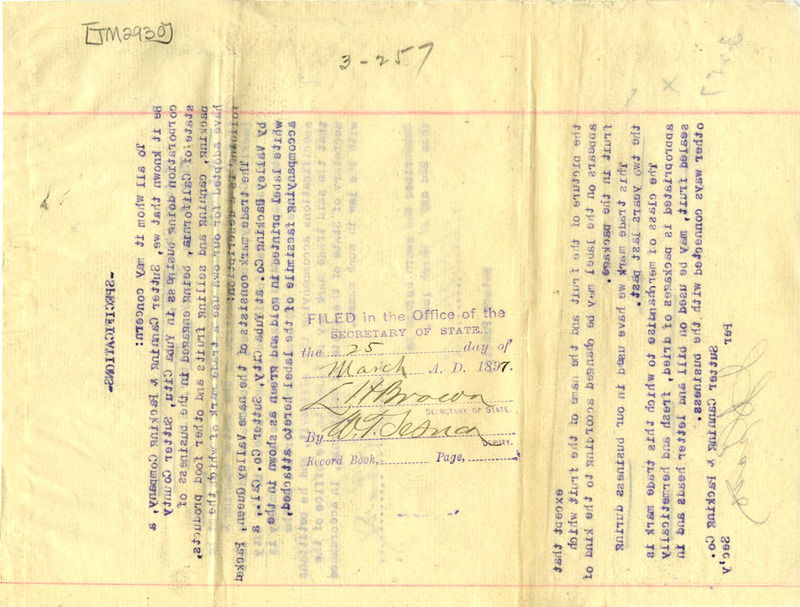 [TM2930]
3-257
FILED in the Office of the
SECRETARY OF STATE.
the 25 day of
March A. D. 1897.
L. H. Brown
SECRETARY OF STATE.
By
DEPUTY.
Record Book, Page,
-SPECIFICATIONS-
To all whom it may concern:
Be it known that we, Sutter Canning & Packing Company, a
corporation doing business in Yuba City, Sutter County
state of California, being engaged in the business of
packing, canning and selling fruits and other food products,
have adopted for our own use a trade mark of which the
following is a description:
The trade mark consists of the name Valley Queen, Packed
by Valley Packing Co. at Yuba City, Sutter Co. Cal., a
white label printed in gold and green as shown in the
accompanying facsimile of the label hereto attached,
except that
the picture of the fruit and the name of the fruit which
appears on the label may be changed according to the kind of
fruit in the package.
This trade mark we have used in our business during
the two years last past.
The class of merchandise to which this trade mark is
appropriated is packages of dried, fresh and hermetically
sealed fruit, may be used on bill and letter heads and in
other ways connected with the business.
Sutter Canning & Packing Co.
Per Sec'y